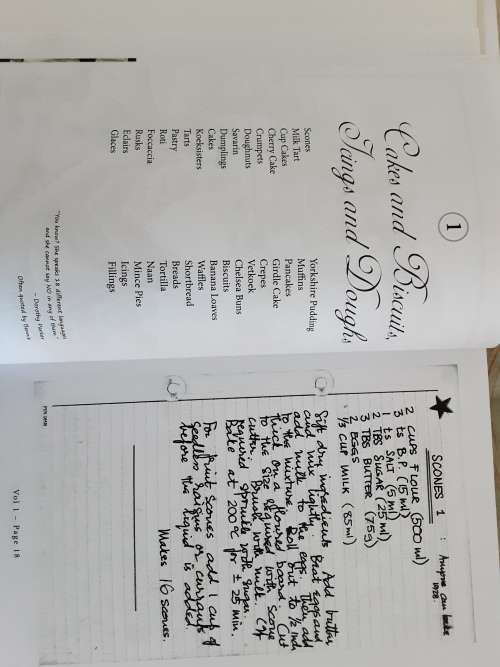 1
Cakes and Biscuits,
Icings and Doughs
Scones
Milk Tart
Cup Cakes
Cherry Cake
Crumpets
Doughnuts
Savarin
Dumplings
Cakes
Koeksisters
Tarts
Pastry
Roti
Foccaccia
Rusks
Eclairs
Glaces
Yorkshire Pudding
Muffins
Pancakes
Girdle Cake
Crepes
Vetkoek
Chelsea Buns
Biscuits
Banana Loaves
Waffles
Shortbread
Breads
Tortilla
Naan
Mince Pies
Icings
Fillings
"You know? She speaks 18 different languages
and she cannot say NO in any of them."
– Dorothy Parker
Often quoted by
SCONES 1 : Anyone can bake
1928.
2 CUPS FLOUR (500 ml)
3 ts B.P. (15 ml)
1 ts SALT (5 ml)
2 TBS SUGAR (25 ml)
3 TBS BUTTER (75g)
2 EGGS
1/3 CUP MILK (85ml)
Sift dry ingredients. Add butter
and rub lightly. Beat eggs and
add milk to the eggs. Then add
to the mixture. Roll out to 1/2 inch
thick on a floured board. Cut
to the size required with scone
cutter. Brush with milk. (If
required sprinkle with sugar.
Bake at 200°C for ± 25 min.
For fruit scones add 1 cup of
seedless raisins or currants
before the liquid is added.
Makes 16 scones.
Vol 1 – Page 18